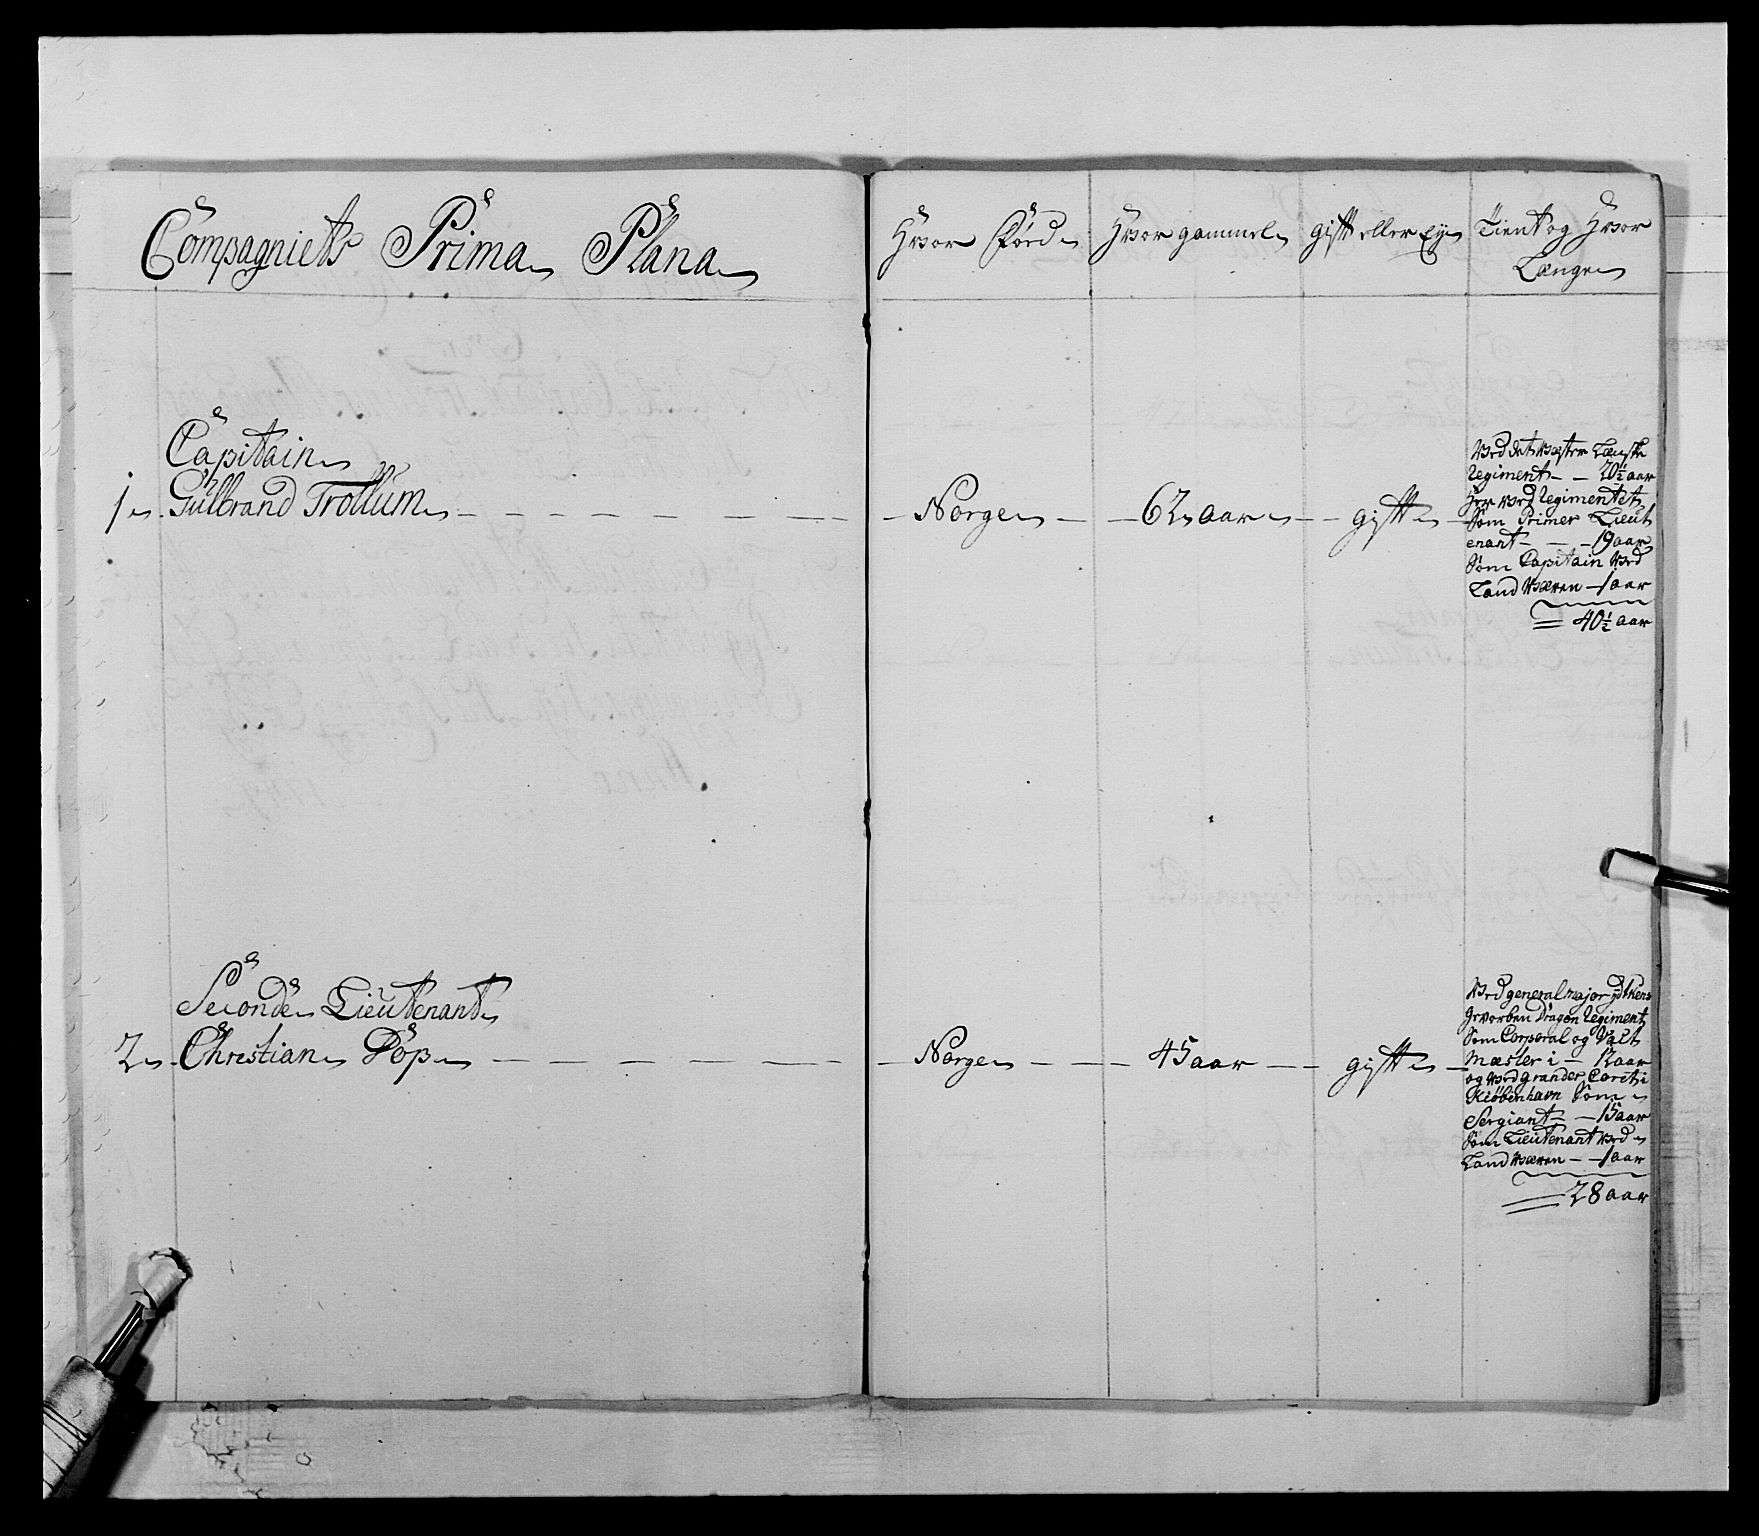 Compagniets Prima Plana
Hvor Fôed
Hvor gammel
gift eller Ey
Tient og Hvor
Længe
Capitain
1 Gulbrand Trollum
Norge
62 aar
gift
Ved det Vester Lenske
Regiment 20½ aar
Her ved Regimentet
Som Primer Lieut
enant 19 aar
Som Capitain ved
Land Wæren 1 aar
40½ aar
Seconde Lieutenant
2 Christian Pop
Norge
45 aar
gift
Ved general major
gevorben Dragon Regiment
Som Corporal og Valt
Mæster i 12 aar
og ved grander Coret i
Kiôbenhavn Som
Sergiant 15 aar
Som Lieutenant ved
Land Wæren 1 aar
28 aar